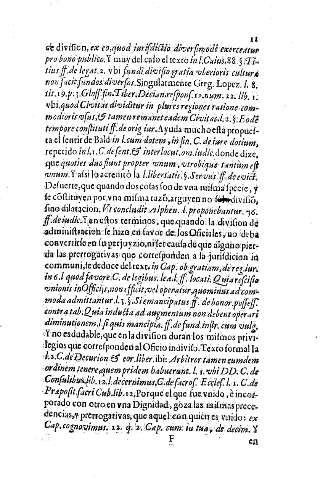 de division, ex eo, quod iurisdictio diversimodè exerceatur
pro bono publico. Y muy del caso el texto in l. Caius. 88. §. Ti-
tius ff. de legat. 2. vbi fundi divisio gratia vberioris culturæ
non facit fundos diversos. Singularmente Greg. Lopez. l. 8.
tit. 19. p. 3. Gloss. fin. Tiber. Decian. respons. 12. num. 22. lib. 1.
vbi, quod Civitas dividitur in plures regiones ratione com-
modioris vsus, & tamen remanet eadem Civitas d. 2. §. Eodē
tempore constituti ff. de orig iur. Ayuda mucho esta propues-
ta el sentir de Bald. in l. cum dotem, in fin. C. de iure dotium,
repetido in l. 1. C. de sent. & interlocut. om. iudic. donde dize,
que quoties duo sunt propter vnum, vtrobique tantum est
vnum. Y assi lo acreditò la l. libertatis. §. Servius ff. de evict.
Desuerte, que quando dos cosas son de vna misma specie, y
se cōstituyen por vna misma razō, arguyen no division,
sino dilatacion. Vt concludit Alphen. l. proponebantur. 76.
ff. de iudic. Y en estos terminos, que quando la division de
administracion se hizo en favor de los Oficiales, no deba
convertirse en su perjuyzio, ni sea causa de que alguno pier-
da las prerrogativas que corresponden à la jurisdicion in
communi, se deduce del text. in Cap. ob gratiam, de reg. iur.
in 6. l. quod favore C. de legibus. l. ea l. ff. locati. Quia rescissio
vnionis in Officijs, non sufficit, vel operatur, quominus ad com-
moda admittantur l. 3. §. Si emancipatus ff. de honor. possess.
contra tab. Quia inducta ad augumentum non debent operari
diminutionem, l. si quis mancipia. ff. de fund. instr. cum vulg.
Y no es dudable, que en la division duran los mismos privi-
legios que corresponden al Oficio indiviso. Texto formal la
l. 2. C. de Decurion & eor. liber. ibi: Arbitror tamen eumdem
ordinem tenere, quem pridem habuerunt. l. 1. vbi DD. C. de
Consulibus. lib. 12. l. decernimus, C. de sacros. Eccles. l. 1. C. de
Praposit. sacri Cub. lib. 12. Porque el que fue vnido, è incor-
porado con otro en vna Dignidad, goza las mismas prece-
dencias, y prerrogativas, que aquel con quien es vnido: ex
Cap. cognovimus. 12. q. 2. Cap. cum in tua, de decim. Y
F en